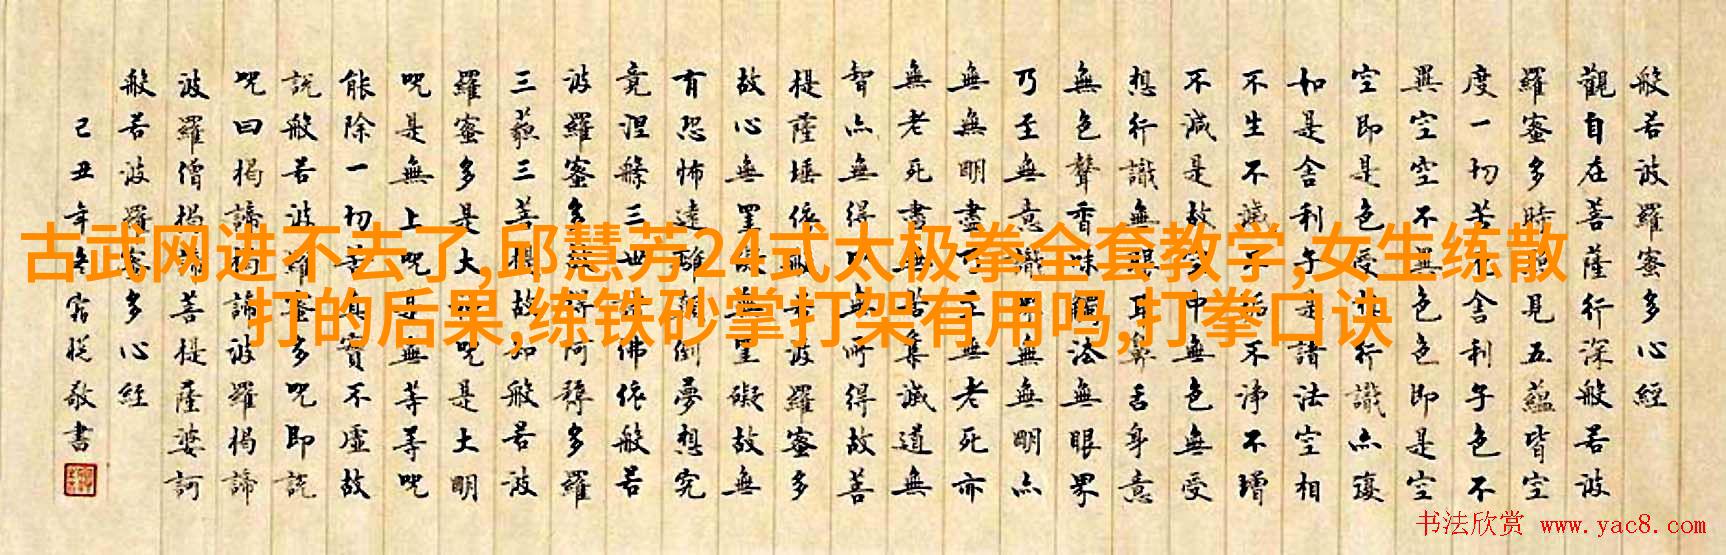 古武网进不去了,邱慧芳24式太极拳全套教学,女生练散
打的后果,练铁砂掌打架有用吗,打拳口诀
般若波羅蜜多心經
觀自在菩薩行深般若波
羅蜜多時照見五蘊皆空
度一切苦厄舍利子色不
異空空不異色色即是空
空即是色受想行識亦復
如是舍利子是諸法空相
不生不滅不垢不淨不增
不減是故空中無色無受
想行識無眼耳鼻舌身意
無色聲香味觸法無眼界
乃至無意識界無無明亦
無無明盡乃至無老死亦
無老死盡無苦集滅道無
智亦無得以無所得故菩
提薩埵依般若波羅蜜多
故心無罣礙無罣礙故無
有恐怖遠離顛倒夢想究
竟涅槃三世諸佛依般若
波羅蜜多故得阿耨多羅
三藐三菩提故知般若波
羅蜜多是大神呪是大明
呪是無上呪是無等等呪
能除一切苦真實不虛故
說般若波羅蜜多呪即說
呪曰揭諦揭諦波羅揭諦
波羅僧揭諦菩提薩婆訶
般若波羅蜜多心經
己丑年冬敬書
书法欣赏 www.yac8.com